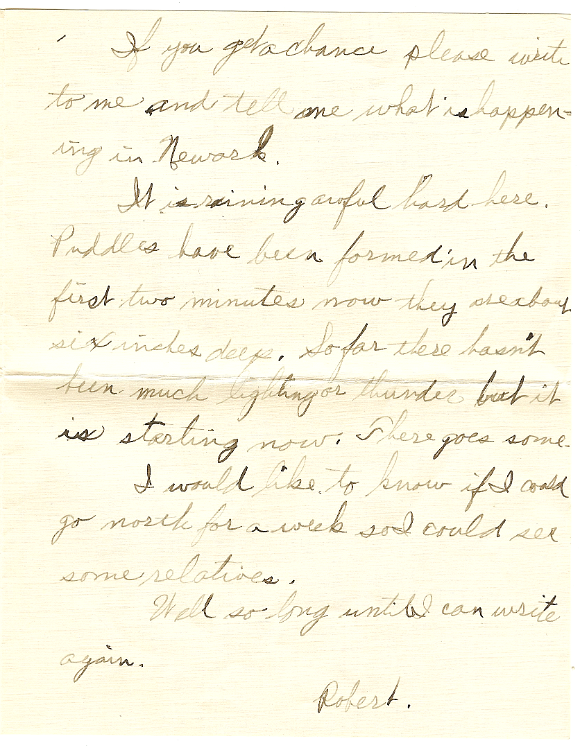 If you get a chance please write
to me and tell me what is happen-
ing in Newark.
It is raining awful hard here.
Puddles have been formed in the
first two minutes now they are about
six inches deep. So far there hasn't
been much lighting or thunder but it
is starting now. There goes some.
I would like to know if I could
go north for a week so I could see
some relatives.
Well so long until I can write
again.
Robert.